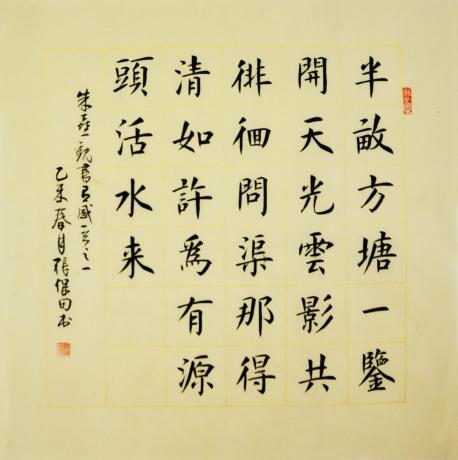 半畝方塘一鑒
開天光雲影共
徘徊問渠那得
清如許爲有源
頭活水来
朱熹觀書有感首之一
乙未春月張保田书